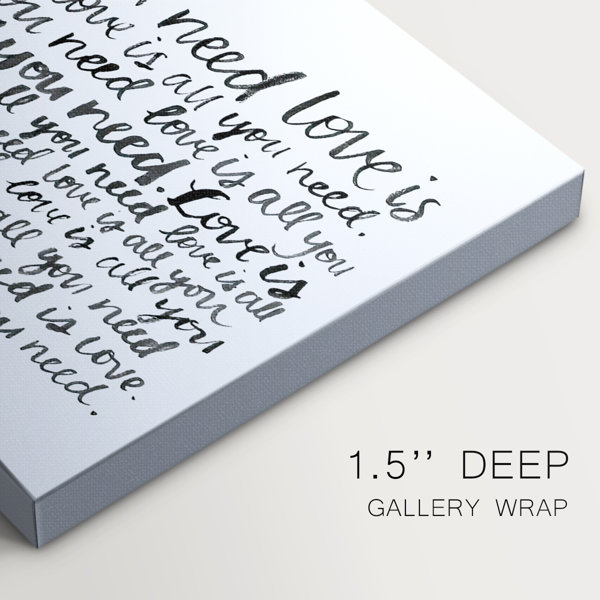 need love is
love is all you need.
you need love is all you
all you need. Love is
need love is all
love is all you
all you need
need is love.
you need.
1.5’’ DEEP
GALLERY WRAP